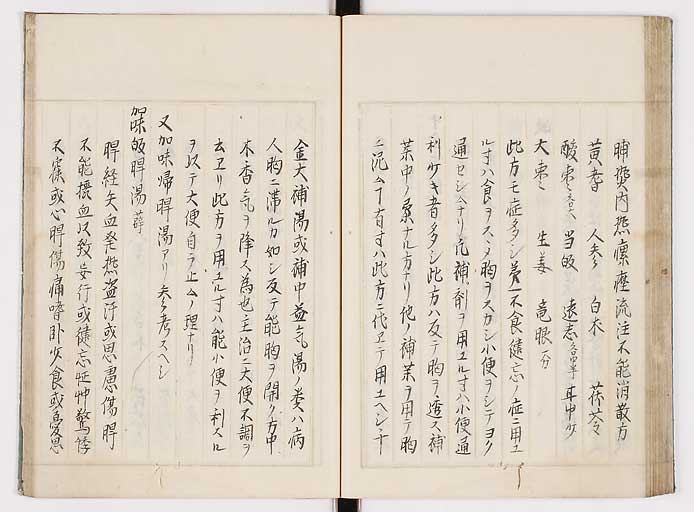 晡發内熱瘰癧流注不能消散方
黄耆 人参 白朮 茯苓
酸棗 各大 当皈 遠志 各中 甘少
大棗 生姜 竜眼 一分
此方モ症多シ第一不食健忘ノ症ニ用ユ
ルトキハ食ヲスヽメ胸ヲスカシ小便ヲシテヨク
通セシムナリ凡補剤ヲ用ユルトキハ小便通
利少ナキ者多シ此方ハ反テ胸ヲ透ス補
薬中ノ最ナル方ナリ他ノ補薬ヲ用テ胸
ニ泥ムコト有トキハ此方ニ代ヱテ用ユヘシ十
全大補湯或補中益気湯ノ類ハ病
人胸ニ滞ルカ如シ反テ能胸ヲ開ク方中
木香気ヲ降ス為也主治ニ大便不調ヲ
云ヱリ此方ヲ用ユルトキハ能小便ヲ利スル
ヲ以テ大便自ラ止ムノ理ナリ
又加味帰脾湯アリ参考スヘシ
加味皈脾湯 薛
脾経失血発熱盗汗或思慮傷脾
不能摂血以致妄行或健忘怔忡驚悸
不寐或心脾傷痛嗜卧少食或憂思